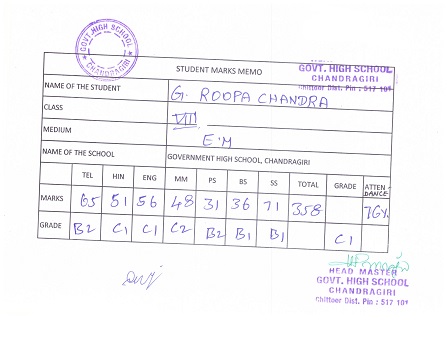 GOVT. HIGH SCHOOL
CHANDRAGIRI
STUDENT MARKS MEMO
GOVT. HIGH SCHOOL
CHANDRAGIRI
Chittoor Dist. Pin : 517 101
NAME OF THE STUDENT G. ROOPA CHANDRA
CLASS VIII
MEDIUM E.M
NAME OF THE SCHOOL GOVERNMENT HIGH SCHOOL, CHANDRAGIRI
TEL HIN ENG MM PS BS SS TOTAL GRADE ATTEN-DANCE
MARKS 65 51 56 48 31 36 71 358
GRADE B2 C1 C1 C2 B2 B1 B1 C1
HEAD MASTER
GOVT. HIGH SCHOOL
CHANDRAGIRI
Chittoor Dist. Pin : 517 101